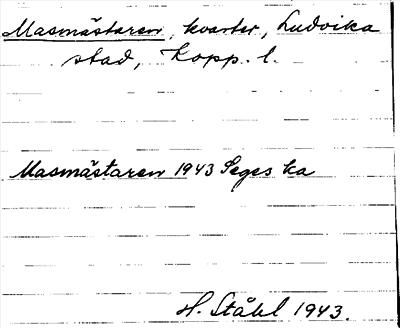 Masmästaren, kvarter, Ludvika
stad, Kopp. l.
Masmästaren 1943 Seges ka
H. Ståhl 1943.